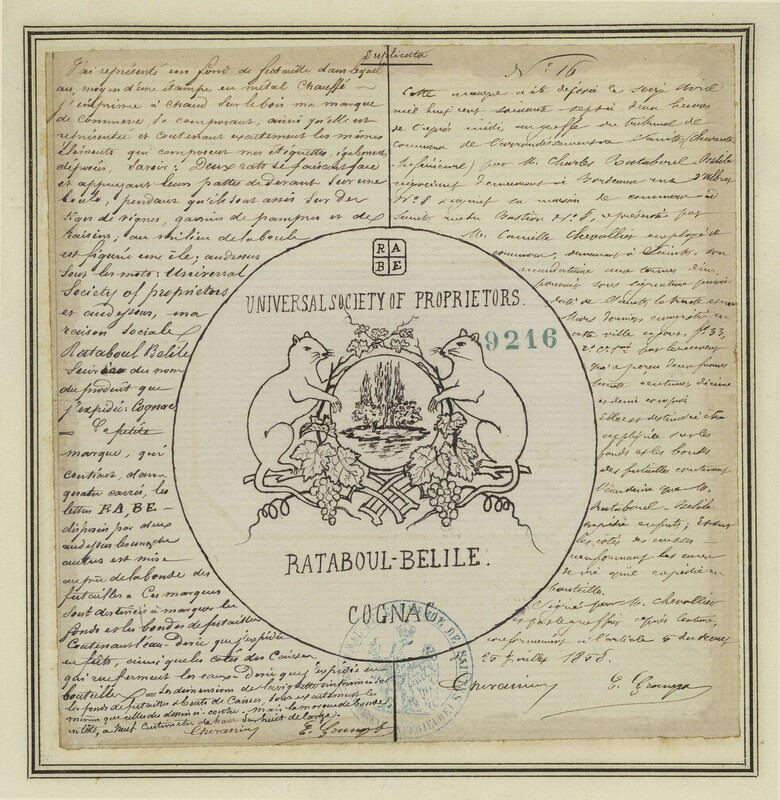 Duplicata
J'ai représenté un fond de futaille dans lequel
au moyen d'une étampe en métal chauffé –
j'imprime à chaud sur le bois ma marque
de commerce se composant, ainsi qu'elle est
représentée et contenant exactement les mêmes
éléments qui composent mes étiquettes, également
déposées, savoir : Deux rats se faisant face
et appuyant leur patte de devant sur une
boule, pendant qu'ils sont assis sur des
tiges de vignes, garnies de pampres et de
raisins ; au milieu de la boule
est figurée une île ; au dessus
sont les mots : Universal
Society of proprietors
et au dessous, ma
raison sociale
Rataboul Belile
du nom
du produit que
j'expédie : Cognac
La petite
marque, qui
contient, dans
quatre carrés, les
lettres R A, B E –
disposées par deux
au dessus les unes des
autres est mise
de la bonde des
futailles = Ces marques
sont destinées à marquer les
fonds et les bondes de futailles
contenant l'eau-de-vie que j'expédie
en fûts, ainsi que les côtés des Caisses
qui renferment les eaux-de-vie que j'expédie en
bouteilles = Les dimensions de
les fonds de futailles et bouts de Caisses, sont exactement les
mêmes que celles du dessin ci-contre – mais la marque de bonde
a huit centimètres de haut sur huit de large.
N° 16
Cette marque a été déposée le seize Avril
mil huit cent soixante-sept à deux heures
de l'après midi, au greffe du tribunal de
commerce de l'arrondissement de Saintes (Charente-
Inférieure) par M. Charles Rataboul-Belile
négociant demeurant à Bordeaux rue
N° 8 ayant sa maison de commerce à
Saintes rue du Bastion N° 8, représenté par
M. Camille Chevallier employé de
commerce, demeurant à Saintes, son
mandataire aux termes d'un
pouvoir sous signature privée
daté de Saintes, le trente et un
Mars dernier, enregistré en
cette ville
par le receveur
qui a perçu deux francs
trente centimes, décime
et demi compris
Elle est destinée à être
appliquée sur les
fonds et les bondes
des futailles contenant
l'eau de vie que M.
Rataboul-Belile
expédie en fûts ; et sur
les côtés des caisses –
renfermant les eaux
de vie qu'il expédie en
bouteilles.
Signé par M. Chevallier
et par le greffier après lecture,
conformément à l'article 5 du décret
du 26 Juillet 1858.
R A
B E
UNIVERSAL SOCIETY OF PROPRIETORS.
9216
RATABOUL-BELILE.
COGNAC